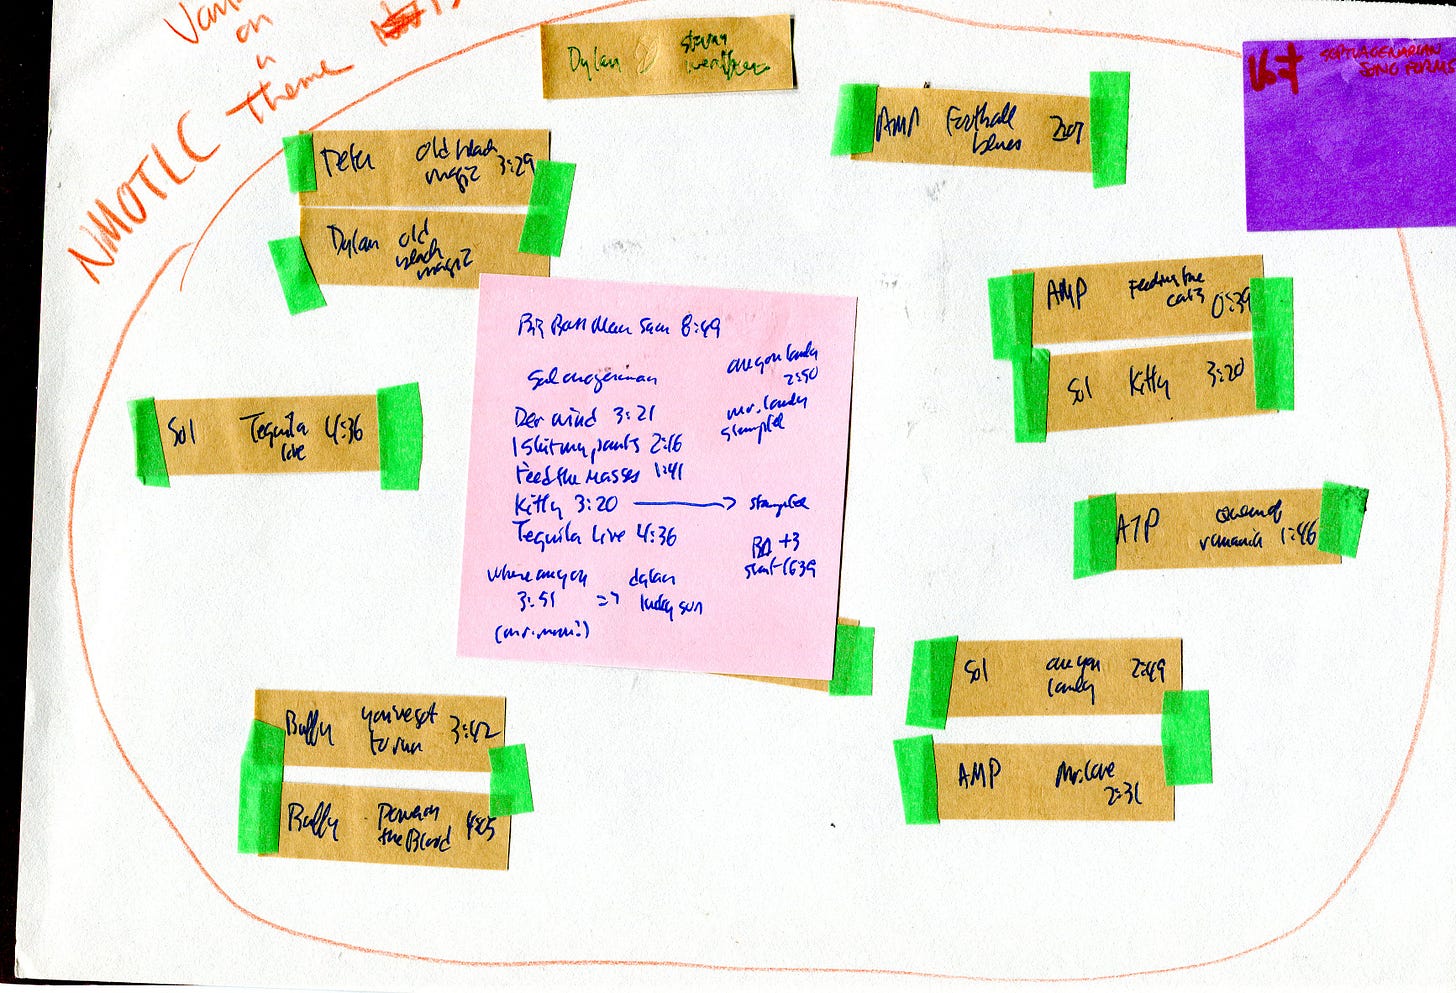 on
a
Theme
NMOTLC
Dylan
Peter old black
magic 3:29
Dylan old
black
magic
AMP Football
blues 2:07
167 SEPTUAGENARIAN
SONG FORMS
AMP Feeding the
cats 0:39
Sol Kitty 3:20
Sol Tequila 4:36
live
ATP queen of
romania 1:46
Sol are you 2:49
lonely
AMP Mr. Love
2:31
Buffy you've got
to run 3:42
Buffy Power in
the Blood 4:05
Big Boss Man 8:49
are you lonely
2:50
Der wind 3:21
I shit my pants 2:16
Feed the Masses 1:41
Kitty 3:20
Tequila Live 4:36
mr. lonely
stampfel
stampfel
+3
start 1639
where are you
3:51
dylan
lucky sun
(mr. moon?)